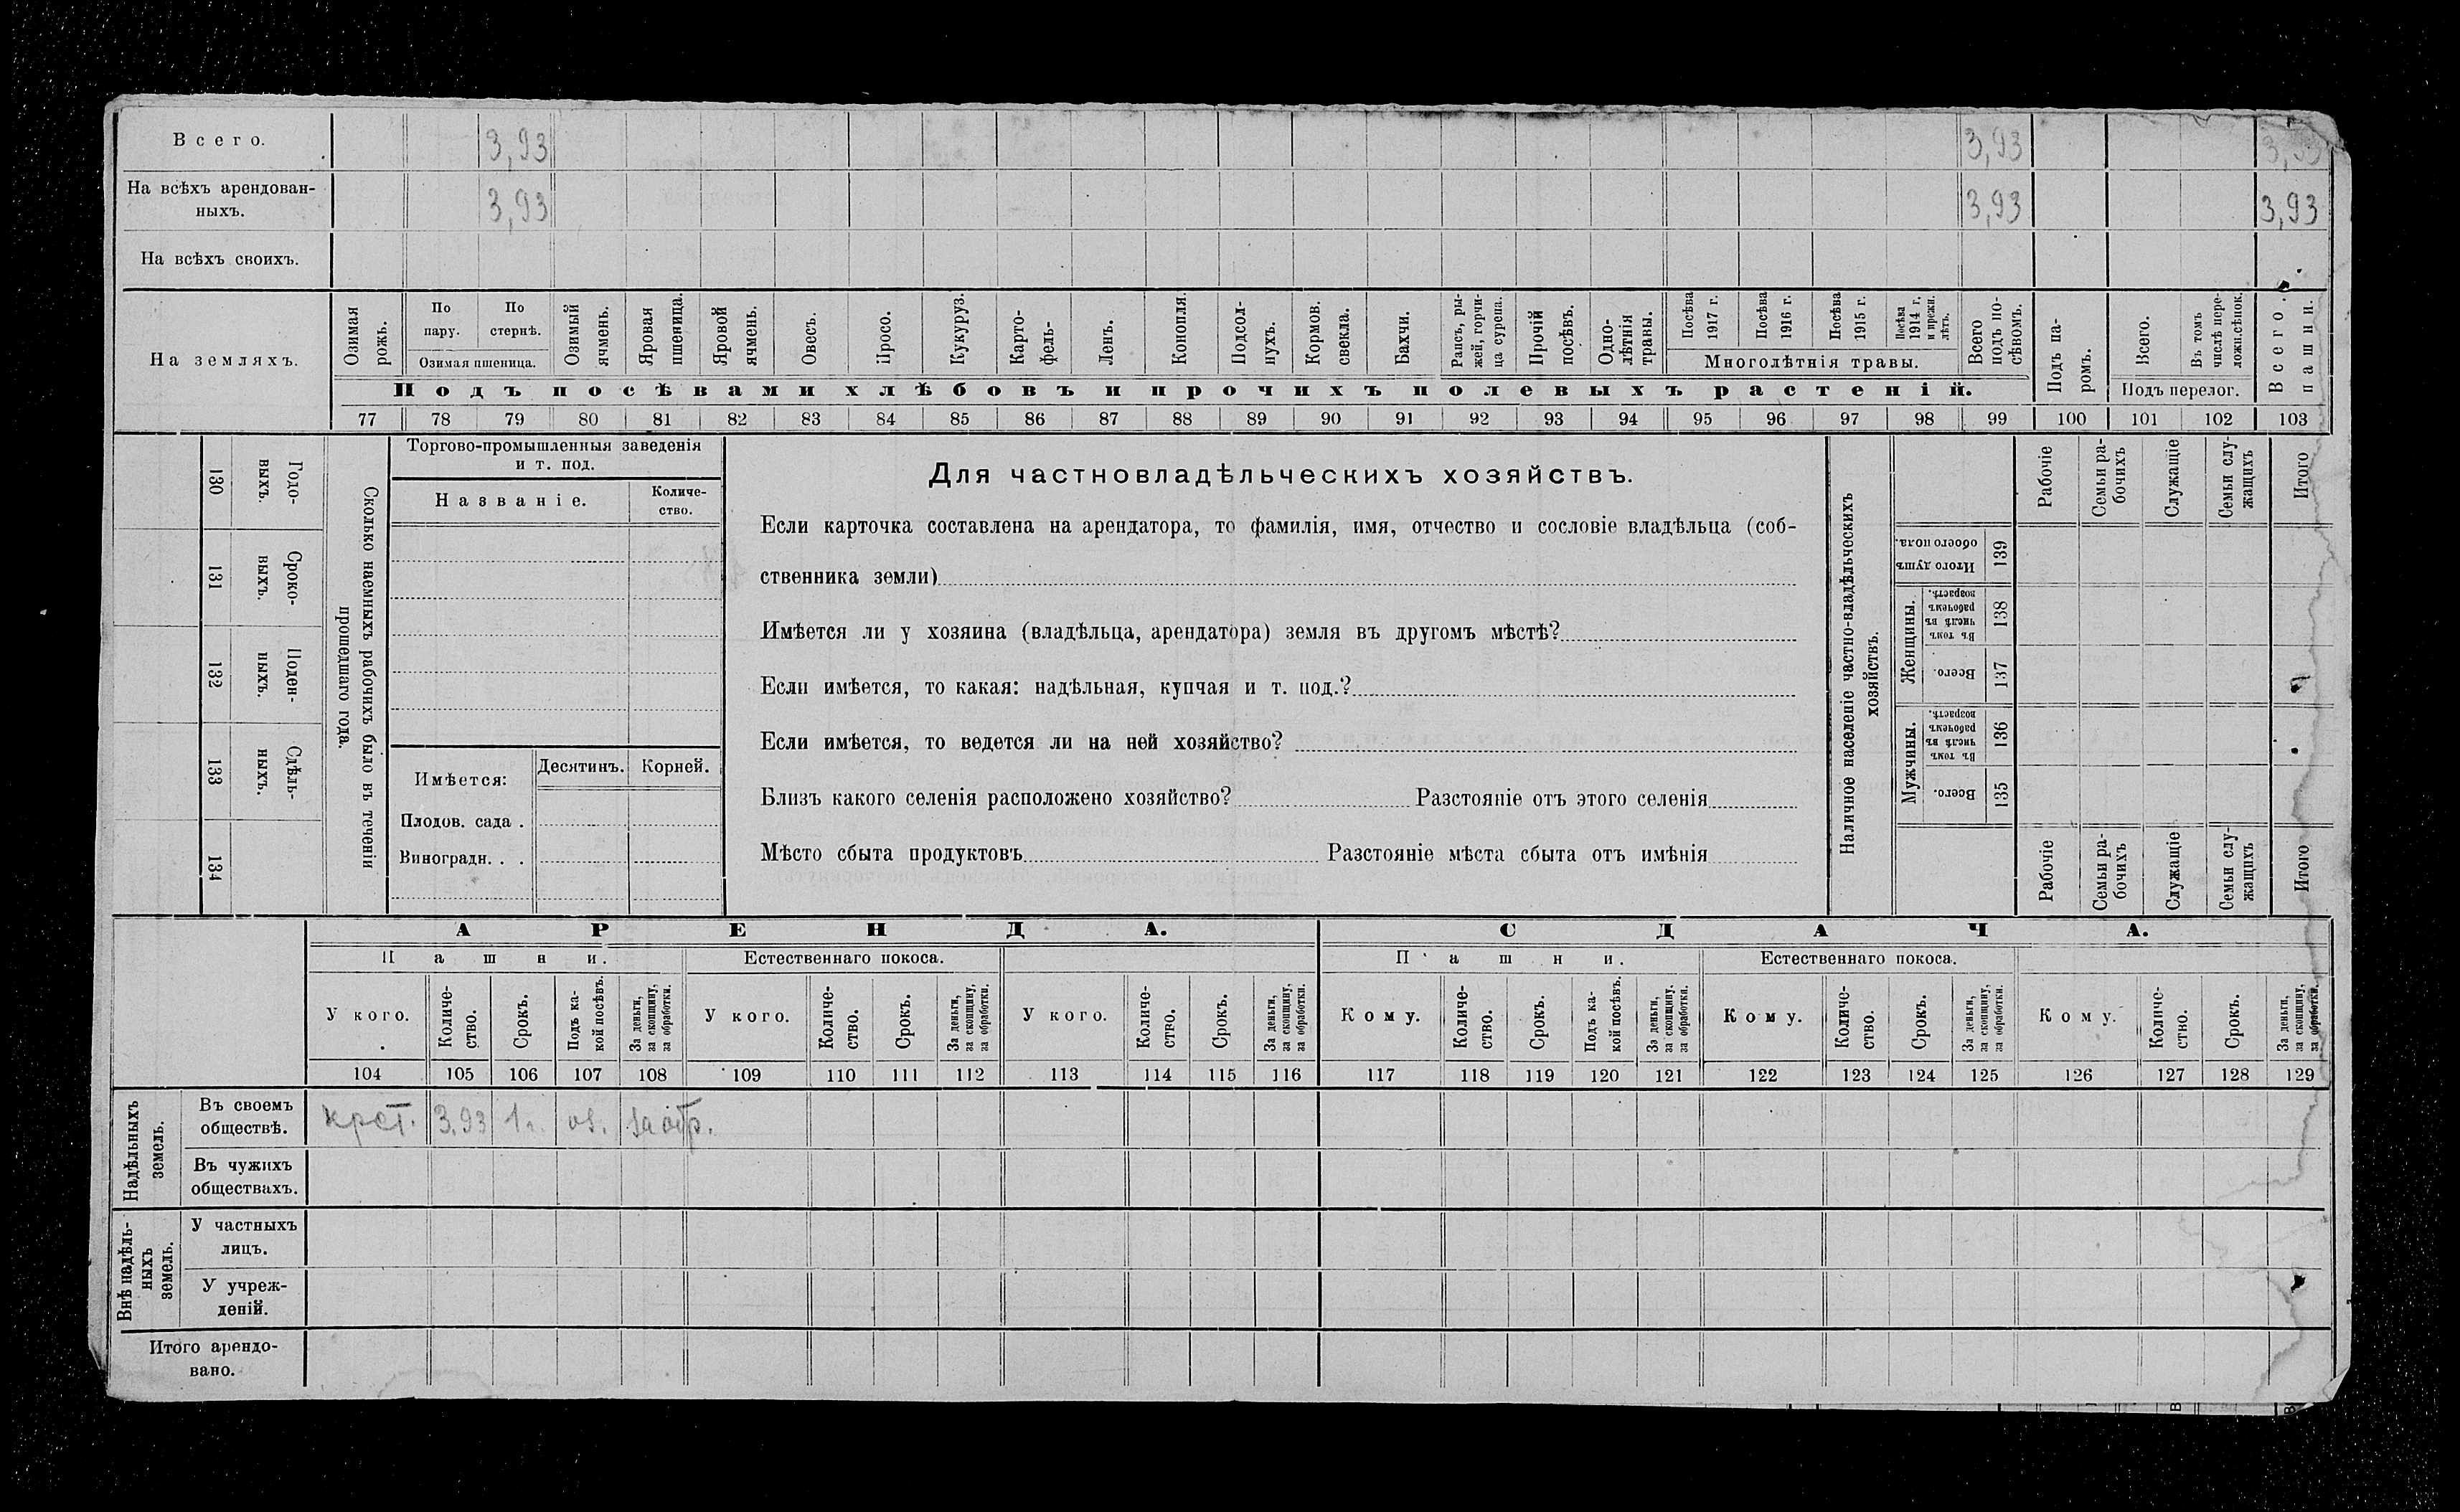 Всего. 3,93 3,93 3,93
На всѣхъ арендован-
ныхъ. 3,93 3,93 3,93
На всѣхъ своихъ.
На земляхъ.
Озимая рожь.
По пару.
По стернѣ.
Озимая пшеница.
Озимый ячмень.
Яровая пшеница.
Яровой ячмень.
Овесъ.
Просо.
Кукуруз.
Карто-
фель-
Ленъ.
Конопля.
Подсол-
нухъ.
Кормов. свекла.
Бахчи.
Рапсъ, ры-
жей, горчи-
ца сурепа.
Прочій посѣвъ.
Одно-
лѣтнія травы.
Посѣва 1917 г.
Посѣва 1916 г.
Посѣва 1915 г.
Посѣва 1914 г. и прежн. лѣтъ.
Многолѣтнія травы.
Всего подъ по-
сѣвомъ.
Подъ па-
ромъ.
Всего.
Въ томъ числѣ пере-
ложн.сѣнок.
Подъ перелог.
Всего пашни.
Подъ посѣвами хлѣбовъ и прочихъ полевыхъ растеній.
77 78 79 80 81 82 83 84 85 86 87 88 89 90 91 92 93 94 95 96 97 98 99 100 101 102 103
130 Годо-
выхъ.
131 Сроко-
ныхъ.
132 Поден-
ныхъ.
133 Сдѣль-
ныхъ.
134
Сколько наемныхъ рабочихъ было въ теченіи
прошедшаго года.
Торгово-промышленныя заведенія
и т. под.
Названіе.
Количе-
ство.
Имѣется: Десятинъ. Корней.
Плодов. сада .
Виноградн. . .
Для частновладѣльческихъ хозяйствъ.
Если карточка составлена на арендатора, то фамилія, имя, отчество и сословіе владѣльца (соб-
ственника земли)
Имѣется ли у хозяина (владѣльца, арендатора) земля въ другомъ мѣстѣ?
Если имѣется, то какая: надѣльная, купчая и т. под.?
Если имѣется, то ведется ли на ней хозяйство?
Близъ какого селенія расположено хозяйство? Разстояніе отъ этого селенія
Мѣсто сбыта продуктовъ Разстояніе мѣста сбыта отъ имѣнія
Наличное населеніе частно-владѣльческихъ
хозяйствъ.
Рабочіе
Семьи ра-
бочихъ
Служащіе
Семьи слу-
жащихъ
Итого
Итого душъ обоего пола. 139
Женщины.
Въ томъ числѣ въ рабочемъ возрастѣ. 138
Всего. 137
Мужчины.
Въ томъ числѣ въ рабочемъ возрастѣ. 136
Всего. 135
Рабочіе
Семьи ра-
бочихъ
Служащіе
Семьи слу-
жащихъ
Итого
АРЕНДА. СДАЧА.
Пашни. Естественнаго покоса. Пашни. Естественнаго покоса.
У кого.
Количе-
ство.
Срокъ.
Подъ ка-
кой посѣвъ.
За деньги,
за скопщину,
за обработки.
У кого.
Количе-
ство.
Срокъ.
За деньги,
за скопщину,
за обработки.
У кого.
Количе-
ство.
Срокъ.
За деньги,
за скопщину,
за обработки.
Кому.
Количе-
ство.
Срокъ.
Подъ ка-
кой посѣвъ.
За деньги,
за скопщину,
за обработки.
Кому.
Количе-
ство.
Срокъ.
За деньги,
за скопщину,
за обработки.
Кому.
Количе-
ство.
Срокъ.
За деньги,
за скопщину,
за обработки.
104 105 106 107 108 109 110 111 112 113 114 115 116 117 118 119 120 121 122 123 124 125 126 127 128 129
Надѣльныхъ
земель.
Въ своемъ
обществѣ. крст. 3,93 1 г. оз. за обр.
Въ чужихъ
обществахъ.
Внѣ надѣль-
ныхъ
земель.
У частныхъ
лицъ.
У учреж-
деній.
Итого арендо-
вано.